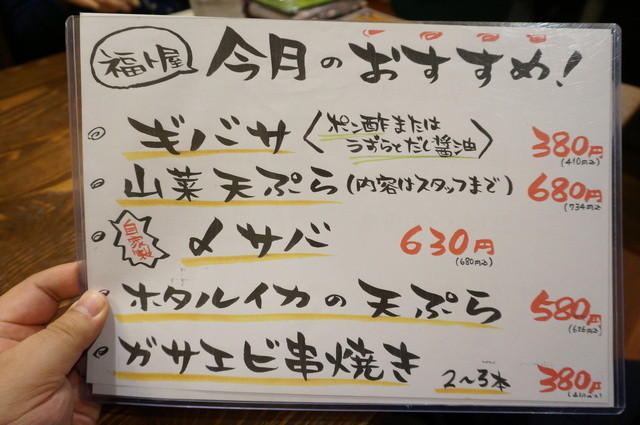 福ト屋
今月のおすすめ!
ギバサ〈ポン酢または
うずらとだし醤油〉 380円
(410円込)
山菜天ぷら(内容はスタッフまで) 680円
(734円込
自家製 〆サバ 630円
(680円込)
ホタルイカの天ぷら 580円
(626円込)
ガサエビ串焼き 2〜3本 380円
(410円込)